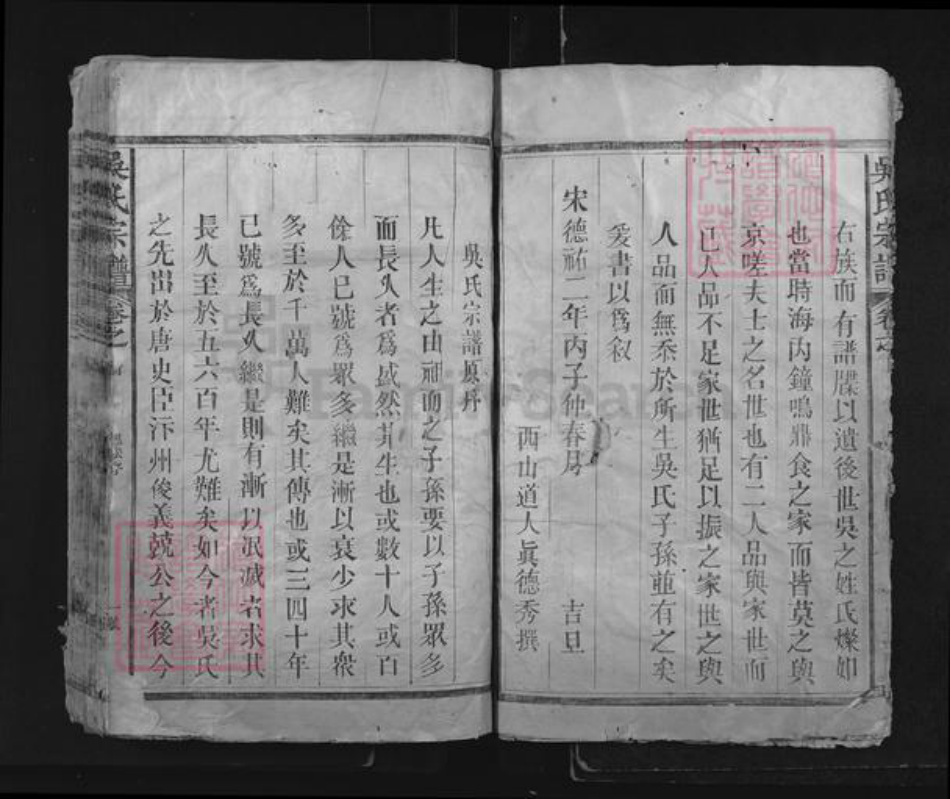 吳氏宗譜 卷之
右族而有譜牒以遺後世吳之姓氏燦如
也當時海內鐘鳴鼎食之家而皆莫之與
京嗟夫士之名世也有二人品與家世而
已人品不足家世猶足以振之家世之與
人品而無忝於所生吳氏子孫並有之矣
爰書以爲叙
宋德祐二年丙子仲春月 吉旦
西山道人眞德秀撰
吳氏宗譜原序
凡人生之由祖而之子孫要以子孫眾多
而長久者爲盛然其生也或數十人或百
餘人已號爲眾多繼是漸以衰少求其衆
多至於千萬人難矣其傳也或三四十年
已號爲長久繼是則有漸以泯滅者求其
長久至於五六百年尤難矣如今者吳氏
之先出於唐史臣汴州俊義兢公之後今
吳氏宗譜 卷之